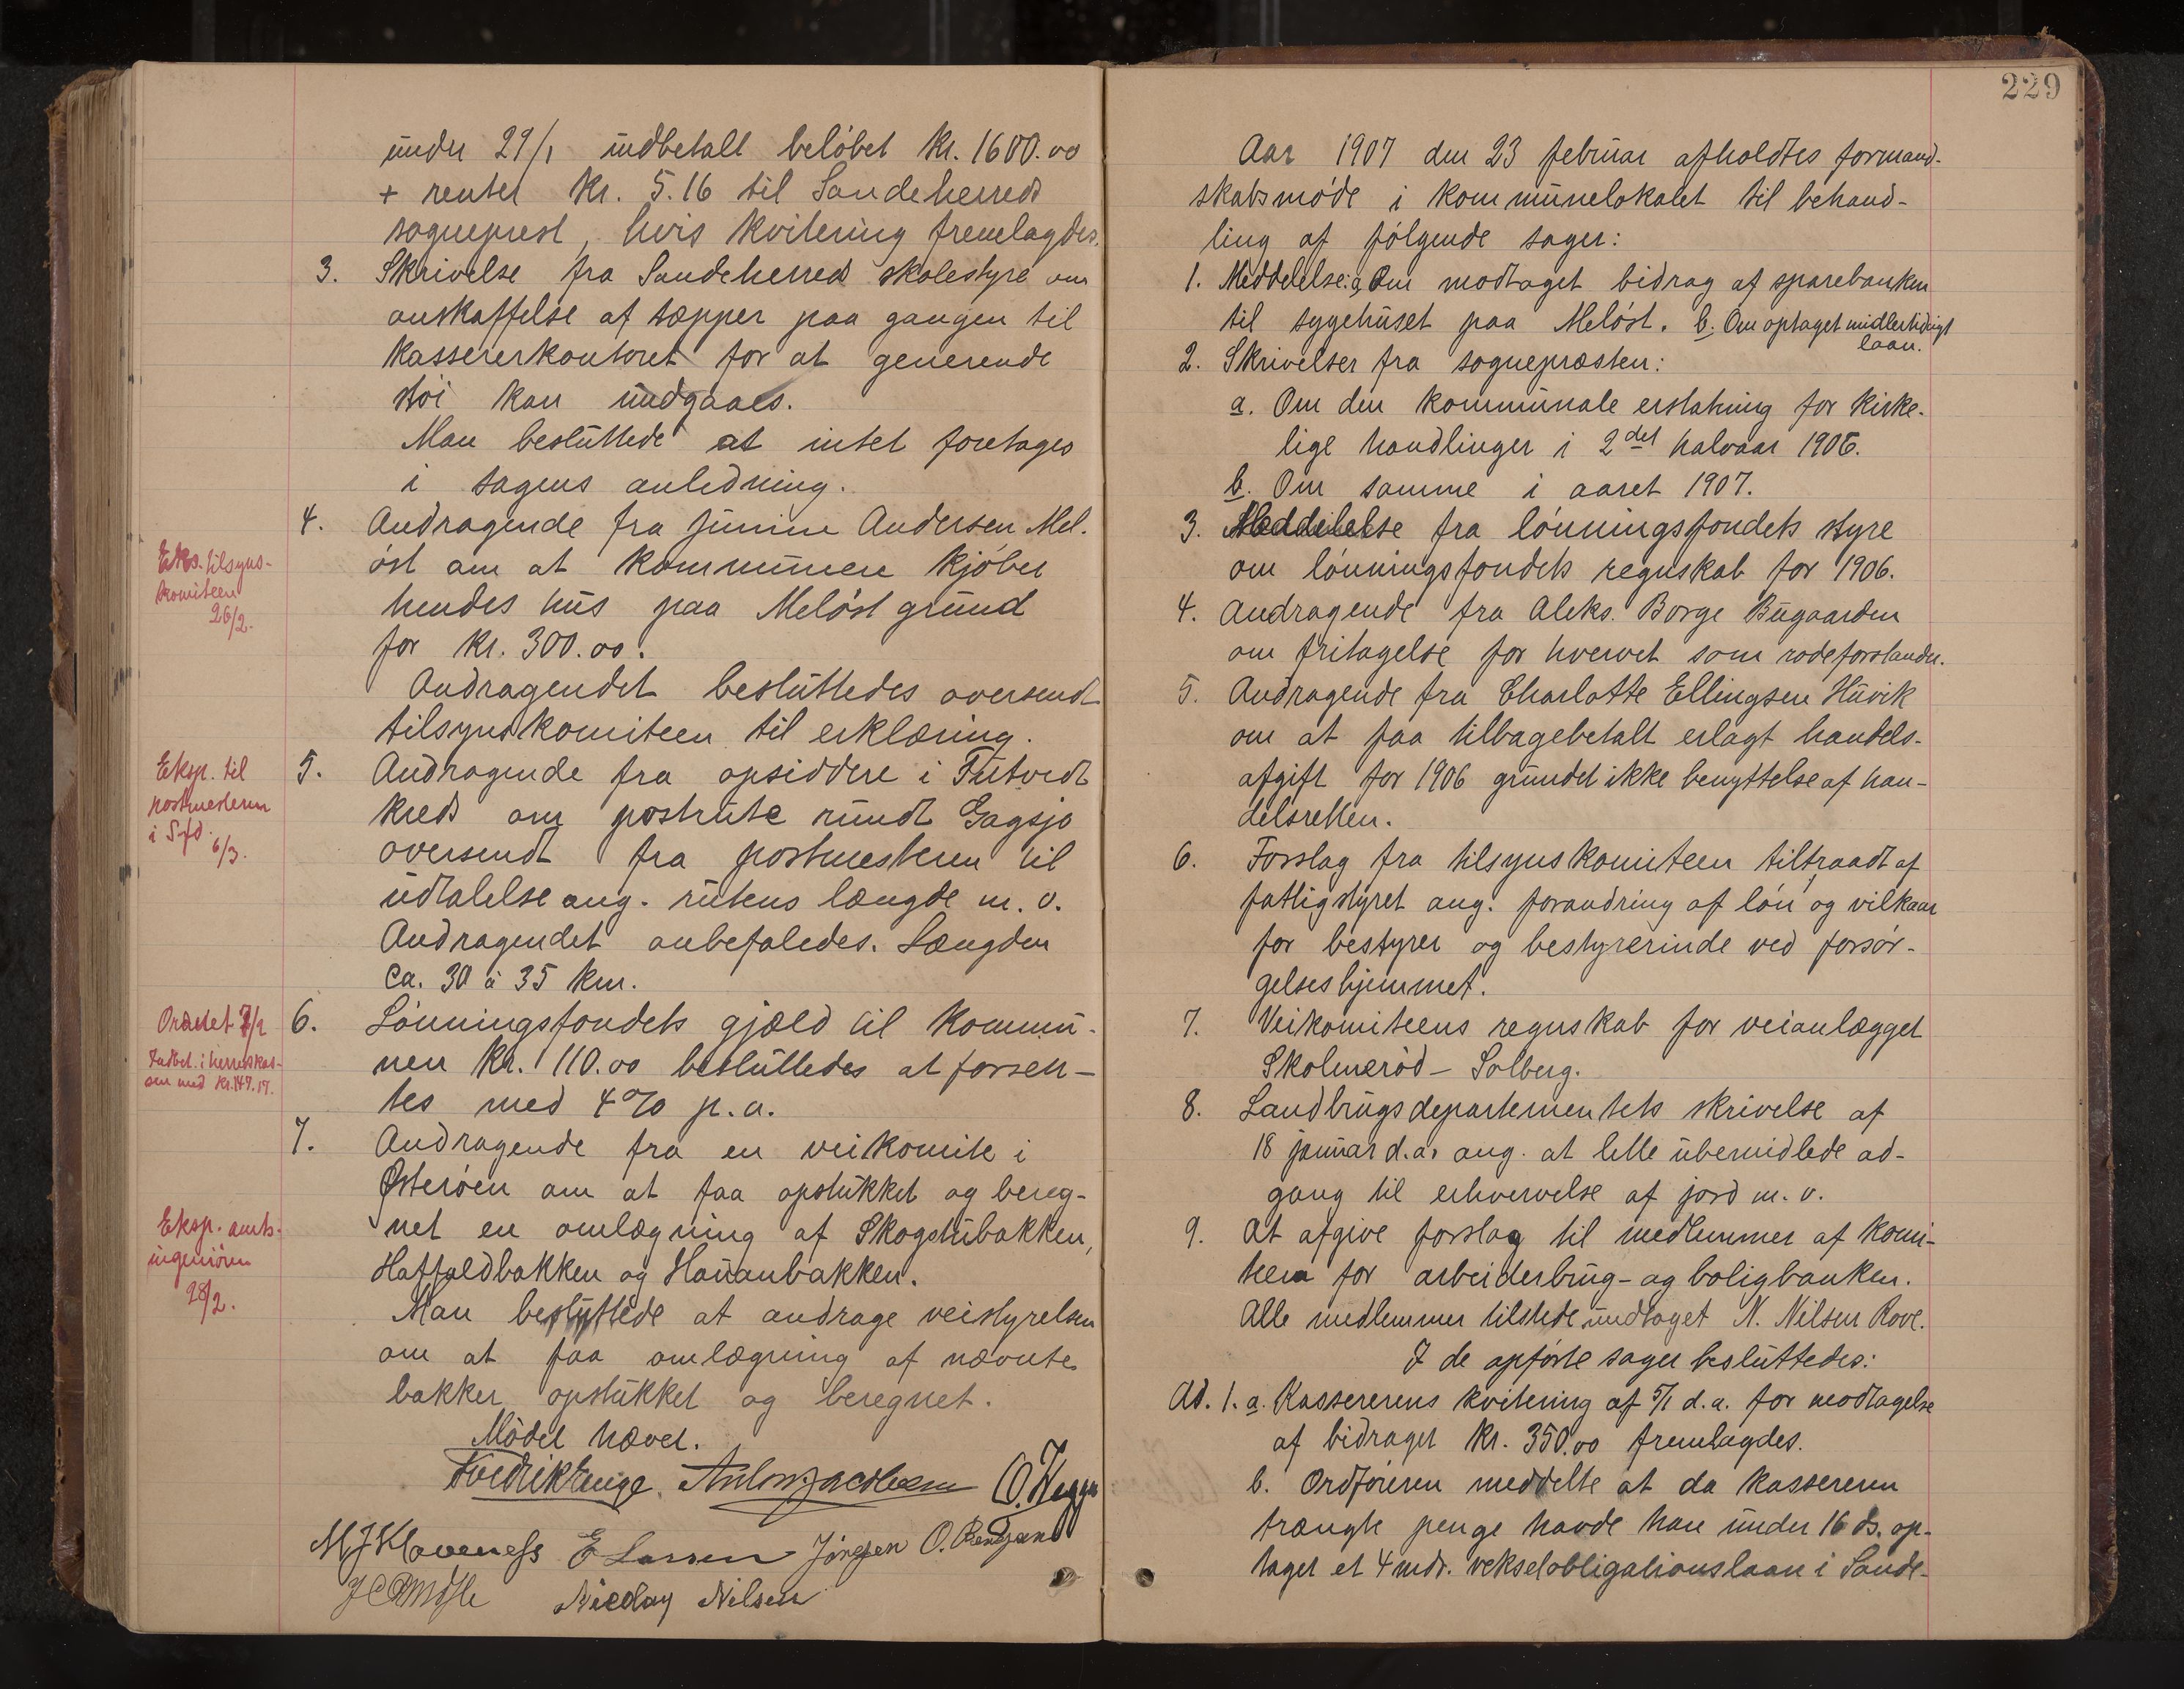 under 29/1 indbetalt beløbet kr. 1600.00
+ renter kr. 5.16 til Sandeherreds
sogneprest, hvis kvitering fremlagdes.
3. Skrivelse fra Sandeherreds skolestyre om
anskaffelse af tæpper paa gangen til
kassererkontoret for at generende
støi kan undgaaes.
Man besluttede at intet foretages
i sagens anledning.
Eks. tilsyns-
komiteen
26/2.
4. Andragende fra Junine Andersen Mel-
øst om at kommunen kjøber
hendes hus paa Meløst grund
for kr. 300.00.
Andragendet besluttedes oversendt
tilsynskomiteen til erklæring.
Eksp. til
postmesteren
i Sfd.
6/3.
5. Andragende fra opsiddere i Futvedt
kreds om postrute rundt Gagsjø
oversendt fra postmesteren til
udtalelse ang. rutens længde m.v.
Andragendet anbefaledes. Længden
ca. 30 à 35 km.
Ordnet 7/2
Indbet. i herredskas-
sen med kr. 147.17.
6. Lønningsfondets gjæld til kommu-
nen kr. 110.00 besluttedes at forren-
tes med 4% p.a.
7. Andragende fra en veikomite i
Østerøen om at faa opstukket og bereg-
net en omlægning af Skogstubakken,
Haffaldbakken og Hauanbakken.
Eksp. amts-
ingeniøren
28/2.
Man besluttede at andrage veistyrelsen
om at faa omlægning af nævnte
bakker opstukket og beregnet.
Mødet hævet.
Fredrik Enge. Anton Jacobsen O. Hegge
M J Klaveness E Larsen Jørgen O. Bentzen
Nicolay Nilsen
229
Aar 1907 den 23 februar afholdtes formand-
skabsmøde i kommunelokalet til behand-
ling af følgende sager:
1. Meddelelse: a, Om modtaget bidrag af sparebanken
til sygehuset paa Meløst. b. Om optaget midlertidigt
laan.
2. Skrivelser fra sognepræsten:
a. Om den kommunale erstatning for kirke-
lige handlinger i 2det halvaar 1906.
b. Om samme i aaret 1907.
3. Meddelelse fra lønningsfondets styre
om lønningsfondets regnskab for 1906.
4. Andragende fra Aleks. Borge Bugaarden
om fritagelse for hvervet som rodeforstander.
5. Andragende fra Charlotte Ellingsen Huvik
om at faa tilbagebetalt erlagt handels-
afgift for 1906 grundet ikke benyttelse af han-
delsretten.
6. Forslag fra tilsynskomiteen tiltraadt af
fattigstyret ang. forandring af løn og vilkaar
for bestyrer og bestyrerinde ved forsør-
gelseshjemmet.
7. Veikomiteens regnskab for veianlægget
Skolmerød – Solberg.
8. Landbrugsdepartementets skrivelse af
18 januar d.a. ang. at lette ubemidlede ad-
gang til erhvervelse af jord m.v.
9. At afgive forslag til medlemmer af komi-
teen for arbeiderbrug- og boligbanken.
Alle medlemmer tilstede undtaget N. Nilsen Rove.
I de opførte sager besluttedes:
Ad. 1. a. Kassererens kvitering af 5/1 d.a. for modtagelse
af bidraget kr. 350.00 fremlagdes.
b. Ordføreren meddelte at da kassereren
trængte penge havde han under 16 ds. op-
taget et 4 mdr. vekselobligationslaan i Sande-